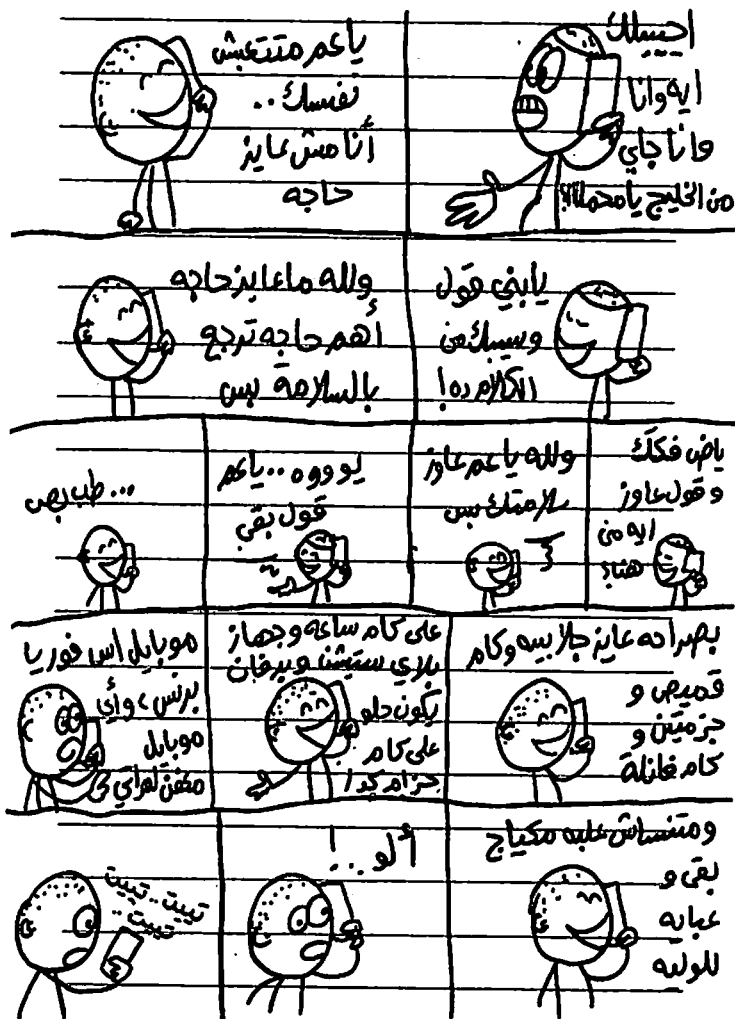 احيبلك
ايه وانا
وانا جاي
من الخليج يا محمااا!!
يا عم متتعبش
نفسك..
أنا مش عايز
حاجه
يا بني قول
وسيبك من
الكلام ده!
ولله ما عايز حاجه
أهم حاجه ترجع
بالسلامة بس
ياض فكك
و قول عاوز
ايه من
هنا؟
ولله يا عم عاوز
سلامتك بس
يووووه..يا عم
قول بقى
...طب بص
بصراحه عايز جلابيه وكام
قميص و
جزمتين و
كام فانلة
على كام ساعه و جهاز
بلاي ستيشن وبرفان
يكون حلو
على كام
حزام كدا
موبايل اس فور يا
برنس، وأي
موبايل
لمراتي
و متنساش علبه مكياج
بقى و
عبايه
للوليه
ألو...!
تييت..تييت
تييت..